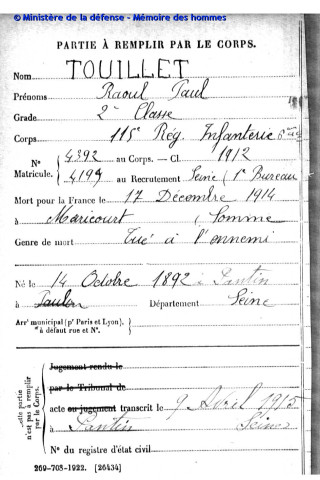 © Ministère de la défense - Mémoire des hommes
PARTIE À REMPLIR PAR LE CORPS.
Nom TOUILLET
Prénoms Raoul Paul
Grade 2e Classe
Corps 115e Rég. Infanterie
N° 4392 au Corps. — Cl. 1912
Matricule. 4199 au Recrutement Seine (1r Bureau
Mort pour la France le 17 Décembre 1914
à Maricourt (Somme
Genre de mort Tué à l'ennemi
Né le 14 Octobre 1892 à Pantin
à Département Seine
Arrt municipal (pr Paris et Lyon),
à défaut rue et N°.
Cette partie n'est pas à remplir par le Corps.
Jugement rendu le
par le Tribunal de
acte ou jugement transcrit le 9 Avril 1915
à Pantin Seine
N° du registre d'état civil
269-708-1922. [26434]